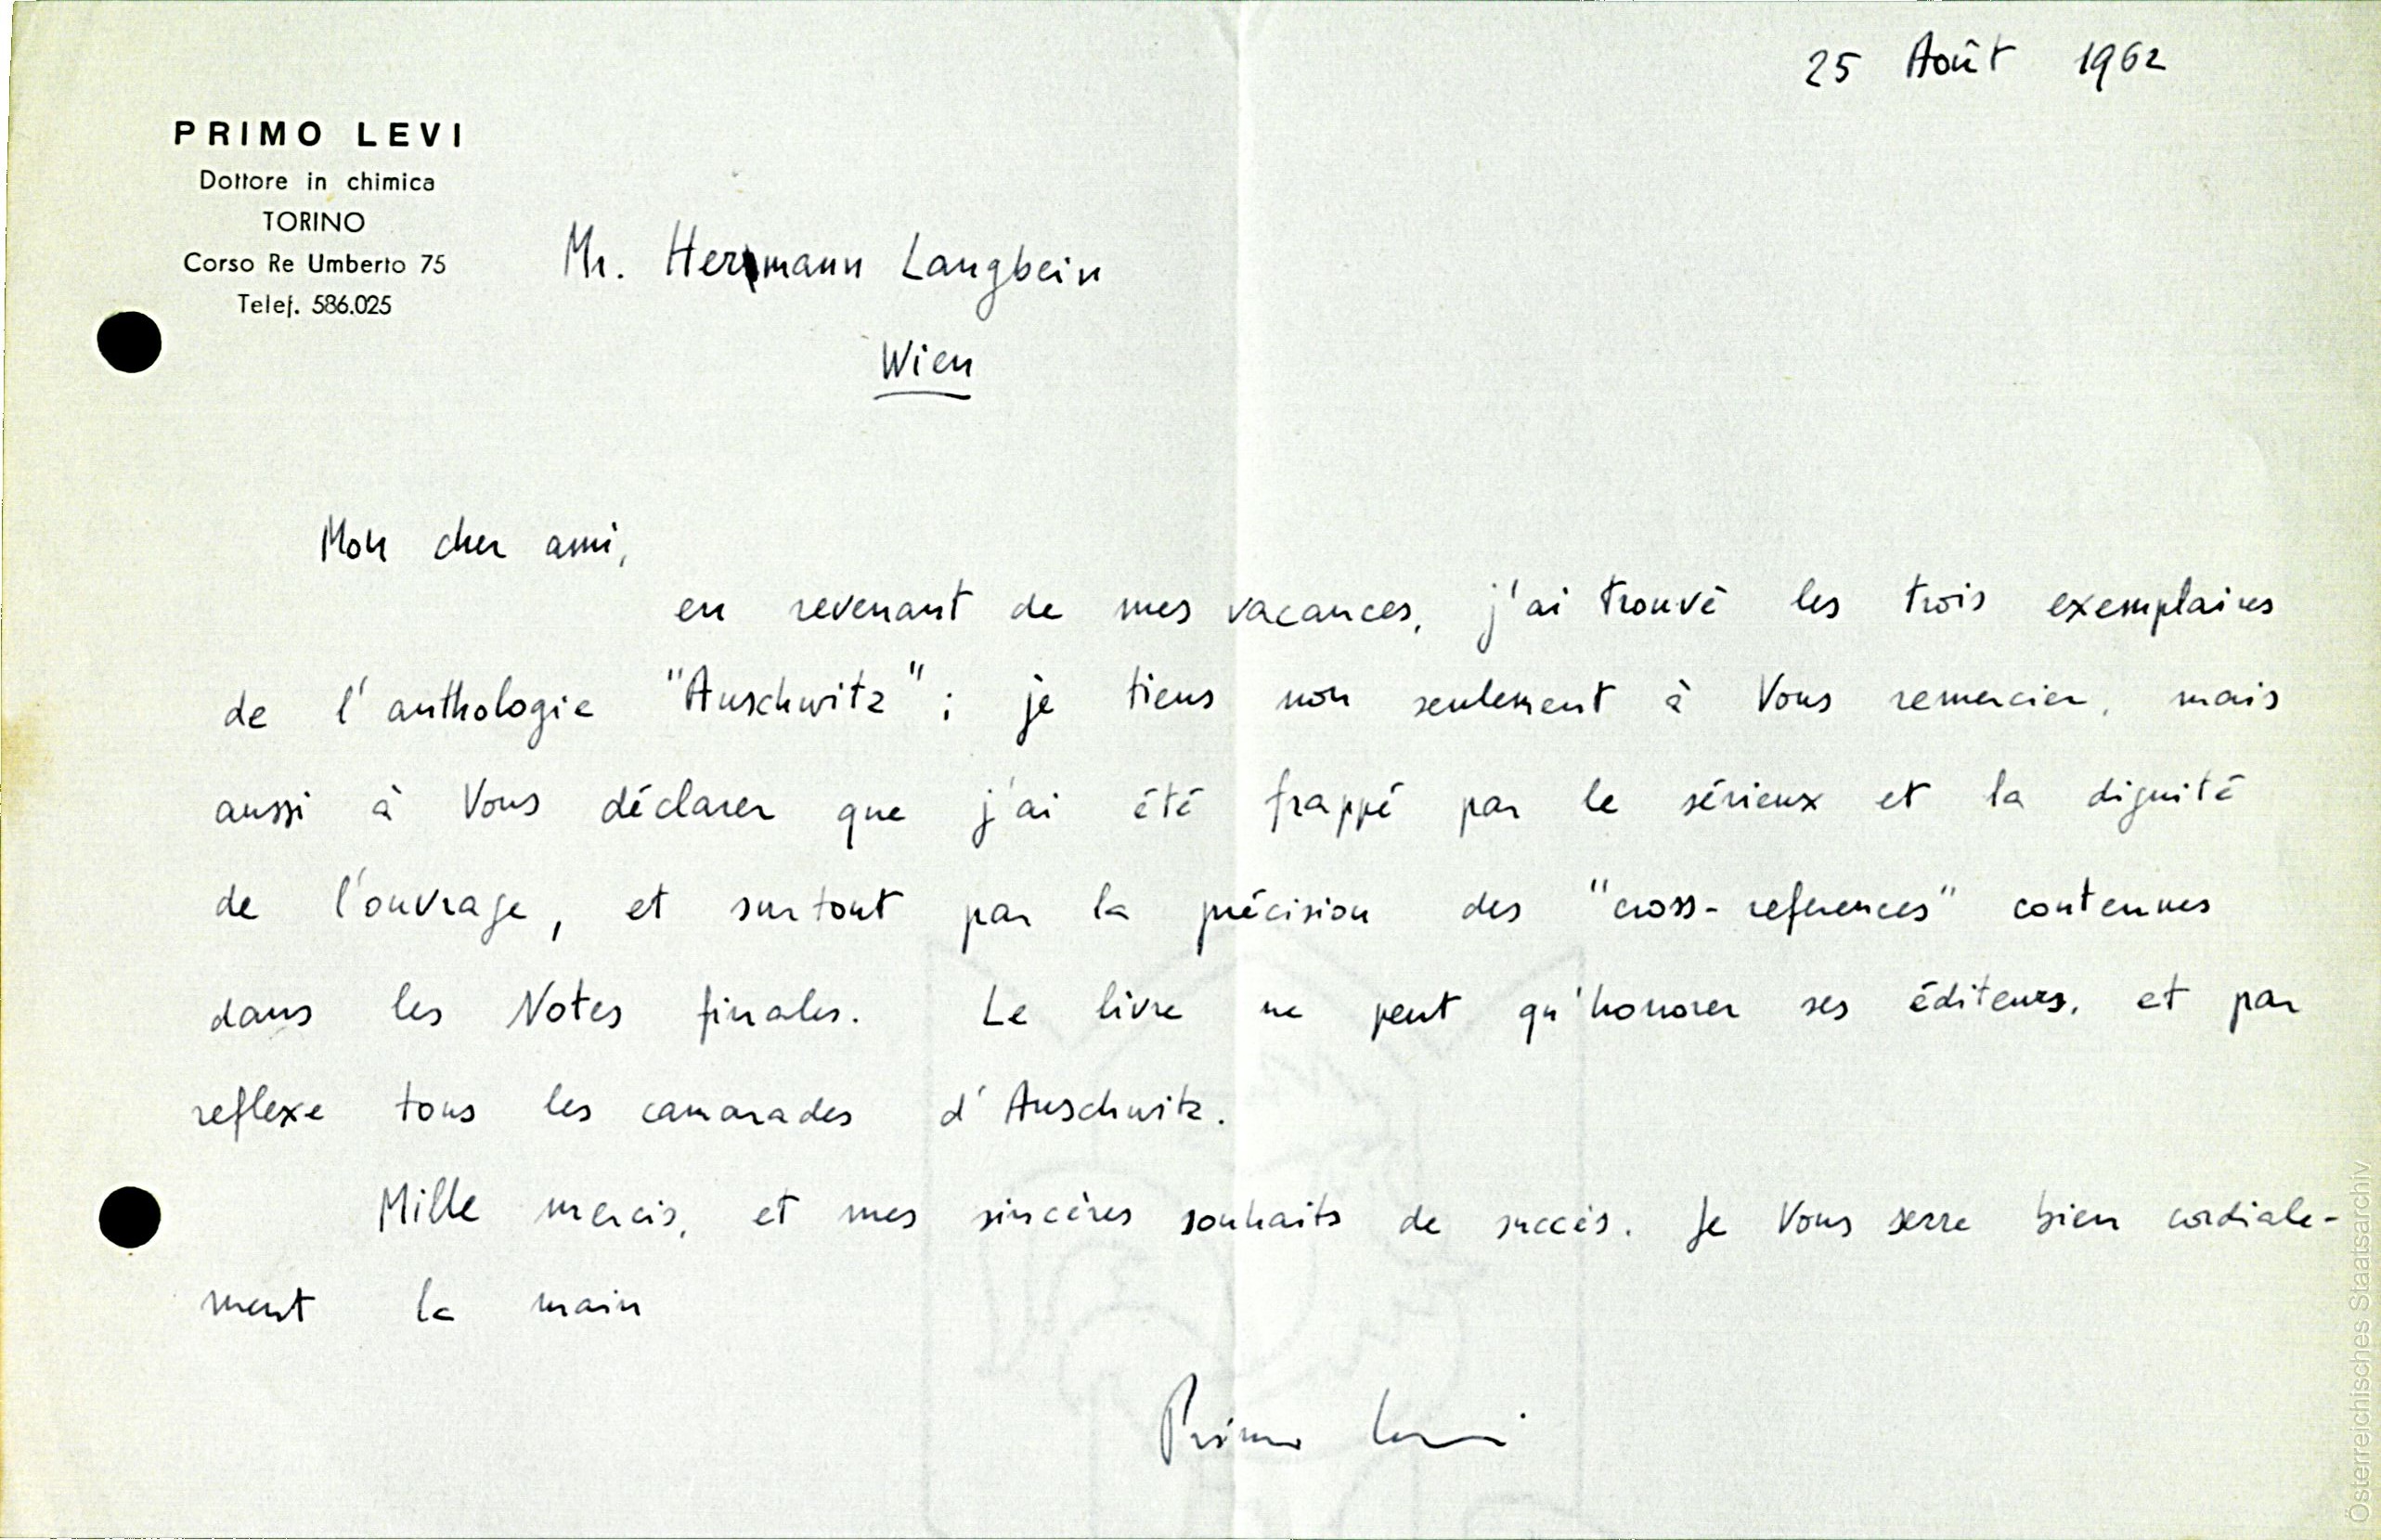 25 Août 1962
PRIMO LEVI
Dottore in chimica
TORINO
Corso Re Umberto 75
Telef. 586.025
Mr. Hermann Langbein
Wien
Mon cher ami,
en revenant de mes vacances, j'ai trouvé les trois exemplaires
de l'anthologie "Auschwitz"; je tiens non seulement à Vous remercier, mais
aussi à Vous déclarer que j'ai été frappé par le sérieux et la dignité
de l'ouvrage, et surtout par la précision des "cross-references" contenues
dans les Notes finales. Le livre ne peut qu'honorer ses éditeurs, et par
reflexe tous les camarades d'Auschwitz.
Mille mercis, et mes sincères souhaits de succès. Je Vous serre bien cordiale-
ment la main
Primo Levi
Österreichisches Staatsarchiv